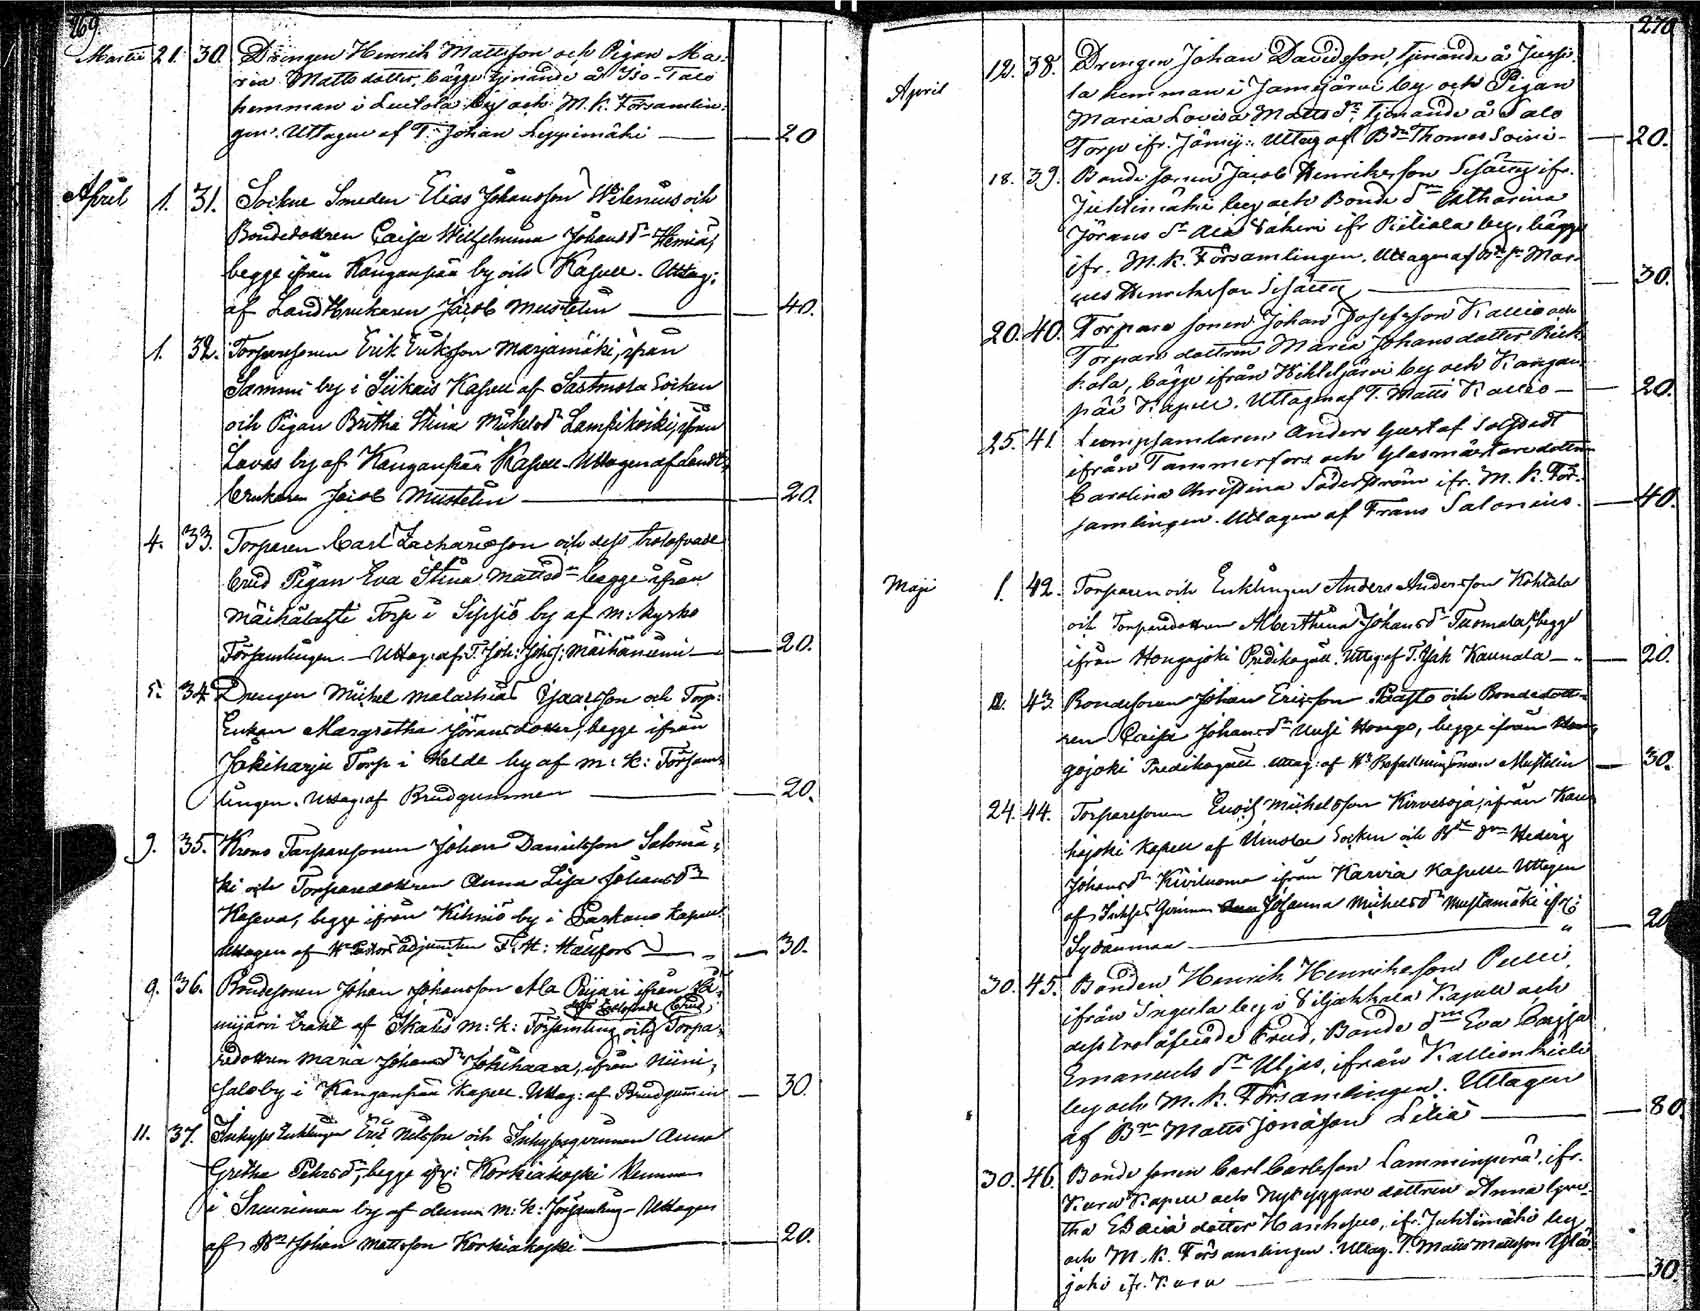 269
Martii 21. 30. Drengen Henrik Mattsson och Pigan Ma-
ria Mattsdotter, bägge tjenande å Iso-Talo
hemman i Luttola by och M. K. Församlin-
gen. Uttagen af T. Johan Leppimäki — 20
April 1. 31. Sockne Smeden Elias Johansson Wilenius och
Bondedottren Caisa Wilhelmina Johansdr
begge ifrån Kanganpää by och Kapell. Uttag:
af Landtbrukaren Jacob Mustelin — 40.
1. 32. Torparesonen Erik Eriksson Marjamäki, ifrån
Sammi by i Siikais Kapell af Sastmola Socken
och Pigan Britha Stina Mickelsdr Lampikoski, ifrån
Lavas by af Kanganpää Kapell. Uttagen af Landt-
brukaren Jacob Mustelin — 20.
4. 33. Torparen Carl Zachariasson och dess trolofvade
brud Pigan Eva Stina Mattsdr begge ifrån
Torp i Sippis by af M: Kyrko
Församlingen. — Uttag: af T. Joh: Johs: — 20.
5. 34 Drengen Mickel Malachias Isaacsson och Torp:
Enkan Margretha Jöransdotter, begge ifrån
Jokiharju Torp i Kelde by af M: K: Försam-
lingen. Uttag: af Brudgummen — 20.
9. 35. Krono Torparesonen Johan Danielsson Salomä-
ki och Torparedottren Anna Lisa Johansdr
Kaseva, begge ifrån Kihniö by i Parkano Kapell
Uttagen af Hr Pastors Adjuncten F. H: — 30.
9. 36. Bondesonen Johan Johansson Ala ifrån Hä-
dess trolofvade Brud
mijärvi by af Ikalis M: K: Församling och Torpa-
redottren Maria Johansdr Jokihaara, ifrån Niini-
salo by i Kanganpää Kapell. Uttag: af Brudgummen — 30.
11. 37. Inhyses Enklingen Eric Nilsson och Inhysesqvinnan Anna
Gretha Petersdr, begge ifr: Korkiakoski Hemman
i Sveriman by af denna M: K: Församling — Uttagen
af Bn Johan Mattsson Korkiakoski — 20.
270
April 12. 38. Drengen Johan Davidsson, tjenande å Jussi-
la hemman i Jämijärvi by och Pigan
Maria Lovisa Mattsdr tjenande å Salo
Torp ifr. Jämij: Uttag af Bdn Thomas Soini — 20.
18. 39. Bonde sonen Jacob Henriksson Sisättö ifr.
Juhtimäki by och Bonde dr Catharina
Jörans dr Ala ifr by, bägge
ifr. M. K. Församlingen. Uttagen af Mar-
cus Henriksson Sisättö — 30.
20. 40. Torpare sonen Johan Josefsson Kallio och
Torpare dottren Maria Johansdotter
kola, bägge ifrån by och Kangan-
pää Kapell. Uttagen af T. Matts Kallio — 20.
25. 41 Lumpsamlaren Anders Gustaf
ifrån Tammerfors och Glasmästaredottren
Carolina Christina Söderström ifr. M. K. För-
samlingen. Uttagen af Frans Salonius. — 40.
Maji 1. 42. Torparen och Enklingen Anders Andersson Kohtala
och Torparedottren Albertina Johansdr Tuomala, begge
ifrån Hongojoki Predikogäll. Uttag: af T. Isak Kaunala — 20.
43. Bondesonen Johan Ericsson och Bondedott-
ren Caisa Johansdr Uusi Hongo, begge ifrån Hon-
gojoki Predikogäll. Uttag: af Hr Befallningsman Mustelin — 30.
24. 44. Torparesonen Enoch Mickelsson Kirvesoja, ifrån Kau-
hajoki Kapell af Ilmola Socken och Bde dn Hedvig
Johansdr Kiviluoma ifrån Karvia Kapell. Uttagen
af Inhyses Qvinnan Johanna Mickelsdr Mustamäki ifr:
Sydänmaa — 20
30. 45. Bonden Henrik Henriksson Pulli,
ifrån Ingula by i Viljakkala Kapell och
dess trolofvade Brud, Bonde dn Eva Caisa
Emanuels dr Uljas, ifrån Kallionkieli
by och M. K. Församlingen. Uttagen
af Bn Matts Jonasson Liliä — 80.
30. 46. Bonde sonen Carl Carlsson Lamminperä, ifr.
Kuru Kapell och Nybyggare dottren Anna Gre-
tha Esaia dotter, ifr. Juhtimäki by
och M. K. Församlingen. Uttag. T. Matts Mattsson Ylä-
joki ifr. Kuru — 30